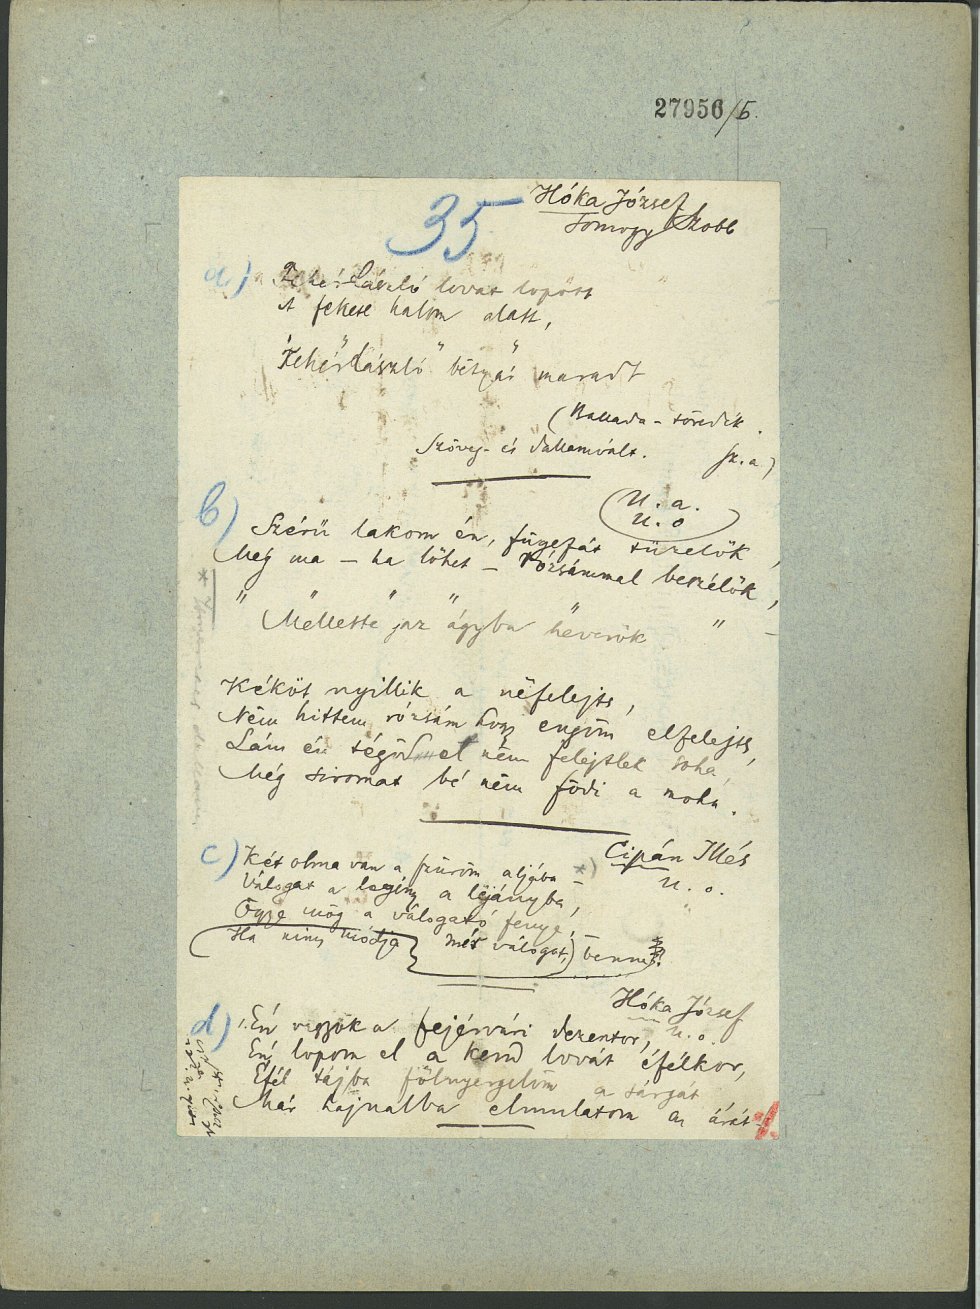 27956/5.
35
Hóka József
Somogy Szobb
a)
Fehér László lovat lopott
A fekete halom alatt,
" " "
Fehér László bétyár maradt
(Ballada-töredék.
Szöveg- és dallamvált. Sz. a)
b)
(U. a.
U. o)
Szérű lakom én, fügefát tüzelök,
Még ma – ha löhet – rózsámmal beszélök,
" " " " " " –
Mellette az ágyba heverök
Kéköt nyillik a nefelejts,
Nem hittem rózsám hogy engöm elfelejts,
Lám én tégöd el nem felejtlek soha,
Még siromat bé nem födi a moha.
c)
Cipán Illés
U. o.
Két alma van a szűröm aljába – *)
Válogat a legény a lejányba,
Ögye mög a válogató fenye,
Ha nincs módja mét válogat, benne?
d)
Hóka József
U. o.
Én vagyok a fejérvári dezentor,
Én lopom el a kend lovát éfélkor,
Éfél tájba fölnyergelöm a sárgát
Már hajnalba elmulatom az árát.